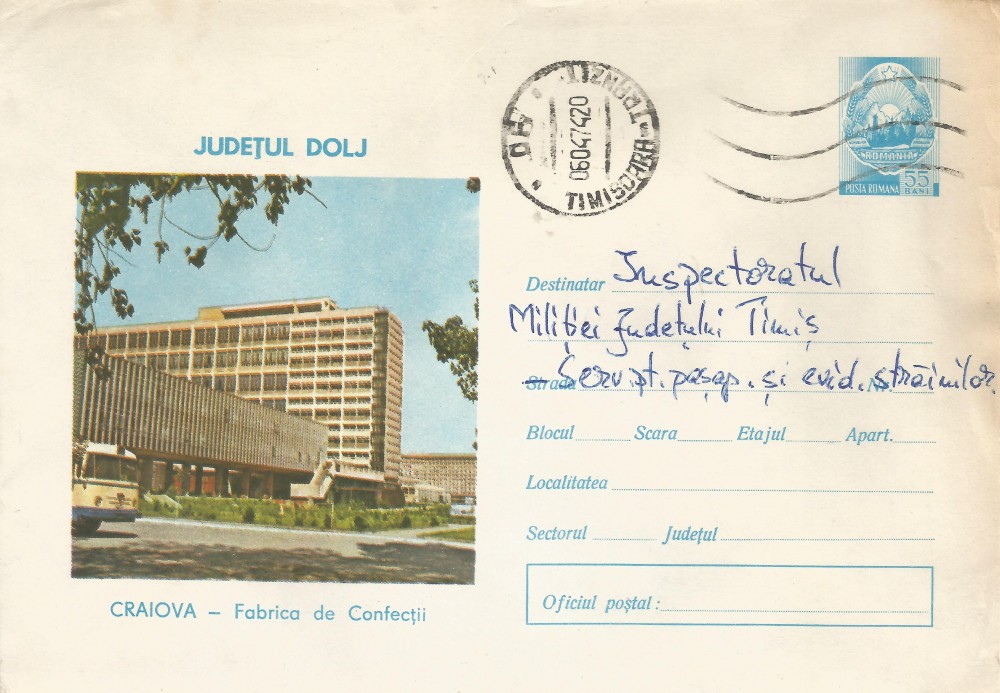 JUDEŢUL DOLJ
CRAIOVA – Fabrica de Confecţii
TIMISOARA TRANZIT
06047420
ROMANIA
POSTA ROMANA
55
BANI
Destinatar Inspectoratul
Miliţiei Judeţului Timiş
Strada Serv. pt. paşap. şi evid. străinilor
Blocul Scara Etajul Apart.
Localitatea
Sectorul Judeţul
Oficiul poştal :